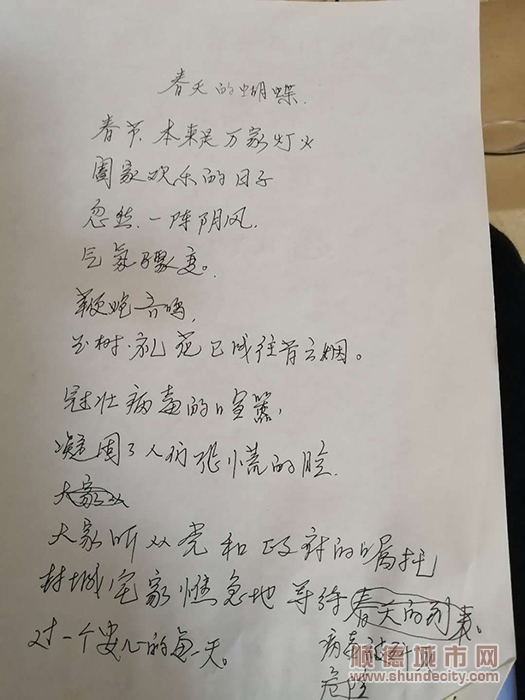 春天的蝴蝶.
春节、本来是万家灯火
阖家欢乐的日子
忽然.一阵阴风.
气氛骤变。
鞭炮音鸣,
火树.礼花已成往昔云烟。
冠壮病毒的喧嚣,
凝固了人们张慌的脸.
大家
大家听从党和政府的嘱托
封城宅家憔急地等待春天的到来。
过一个安心的每一天。
病毒
危险
顺德城市网
www.shundecity.com